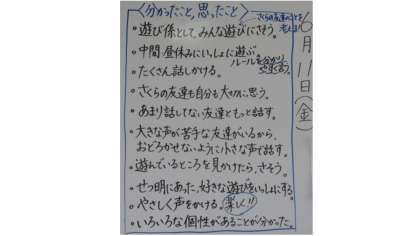 6月11日(金)
<分かったこと,思ったこと>
さくらの友達のことを
考える!
・遊び係として,みんな遊びにさそう。
・中間・昼休みにいっしょに遊ぶ。
ルールを分かり
・たくさん話しかける。
・さくらの友達も自分も大切に思う。
・あまり話してない友達ともっと話す。
・大きな声が苦手な友達がいるから、
おどろかせないように小さな声で話す。
・遊んでいるところを見かけたら,さそう。
・せつ明にあった,好きな遊びをいっしょにする。
・やさしく声をかける。楽しく!!
・いろいろな個性があることが分かった。